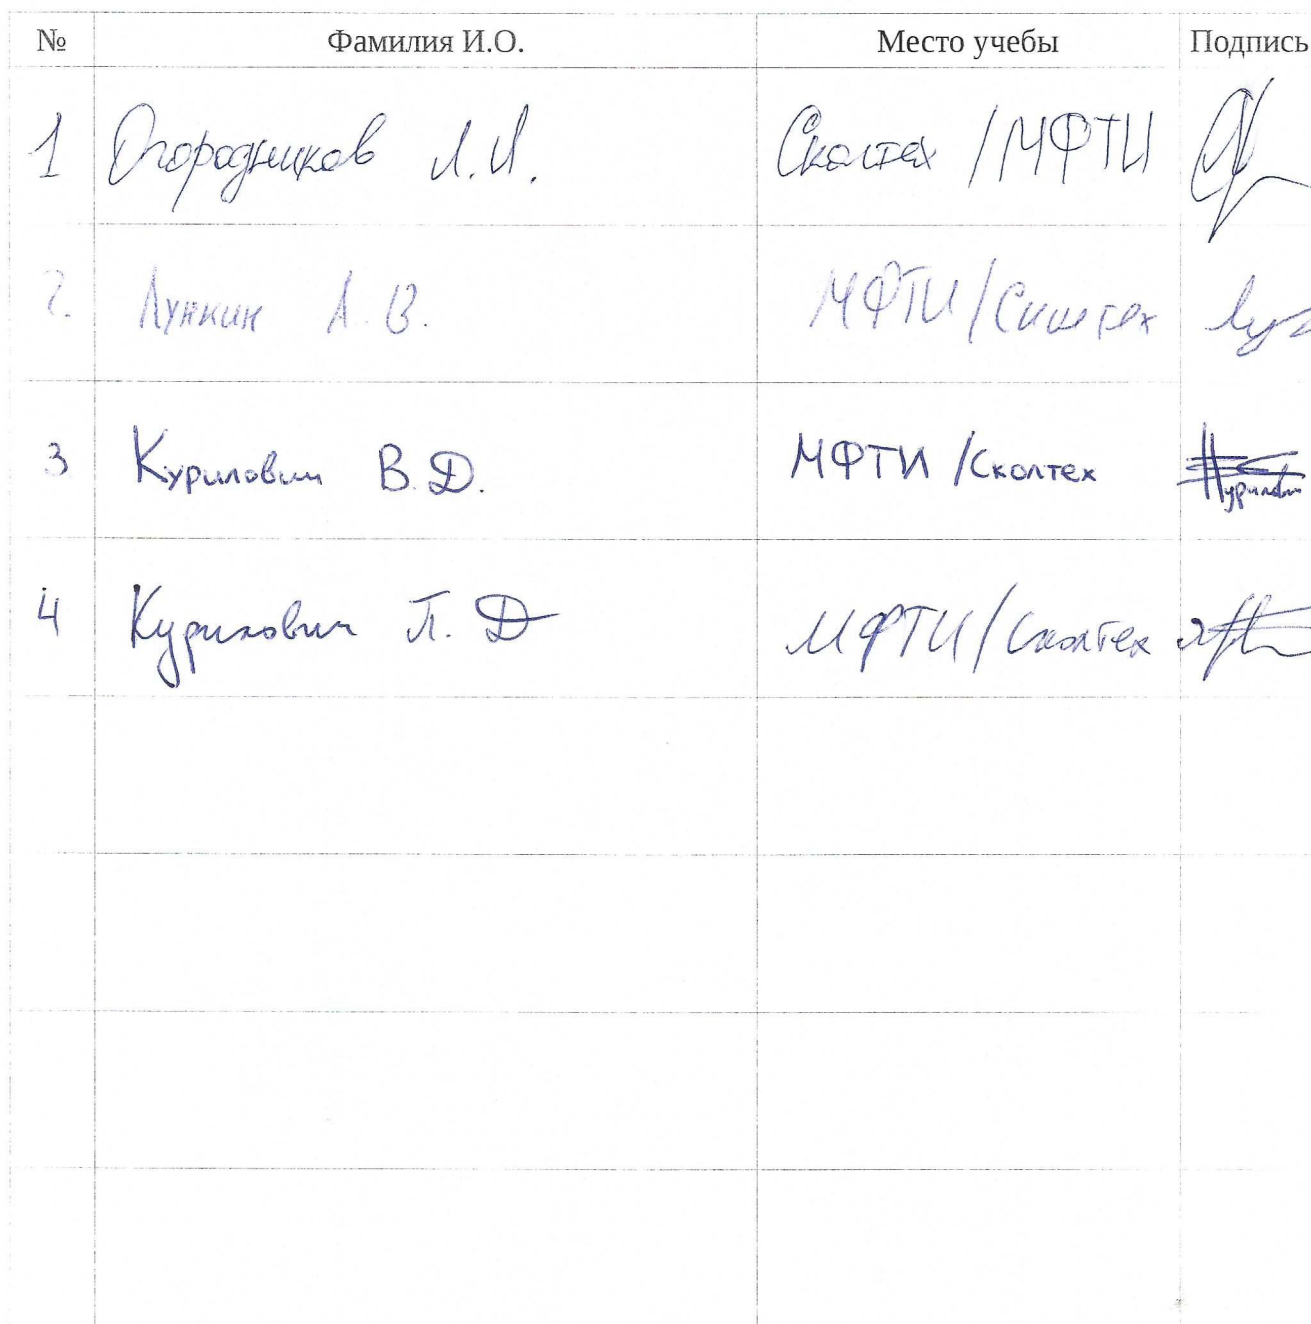 № Фамилия И.О. Место учебы Подпись
1 Огородников Л.И. Сколтех / МФТИ
2. Лункин А.В. МФТИ / Сколтех
3 Курилович В.Д. МФТИ / Сколтех
4 Курилович П.Д МФТИ / Сколтех